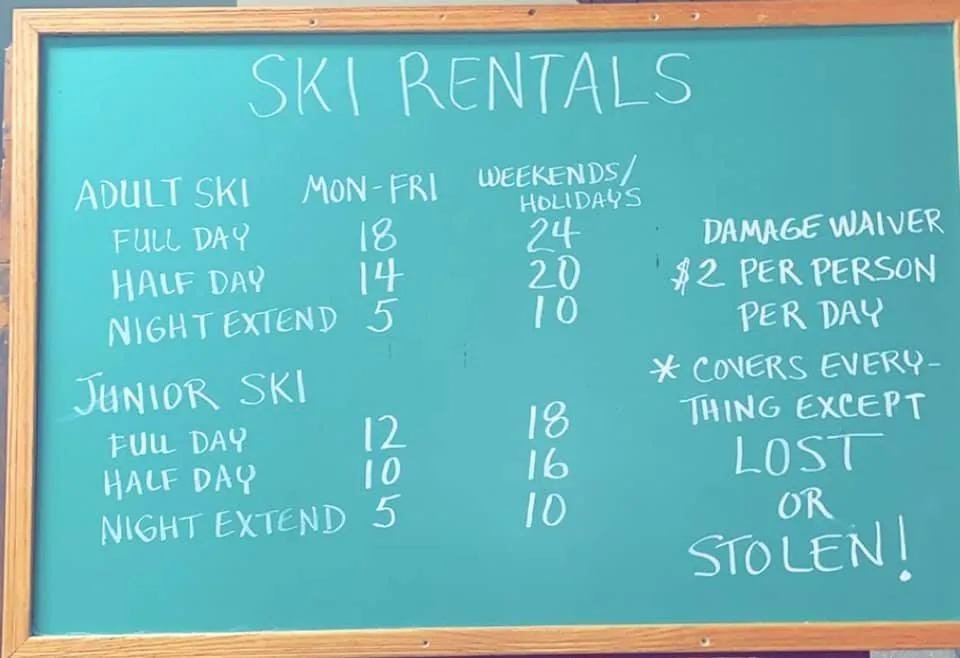 SKI RENTALS
ADULT SKI MON-FRI WEEKENDS/
HOLIDAYS
FULL DAY 18 24
HALF DAY 14 20
NIGHT EXTEND 5 10
JUNIOR SKI
FULL DAY 12 18
HALF DAY 10 16
NIGHT EXTEND 5 10
DAMAGE WAIVER
$2 PER PERSON
PER DAY
* COVERS EVERY-
THING EXCEPT
LOST
OR
STOLEN!